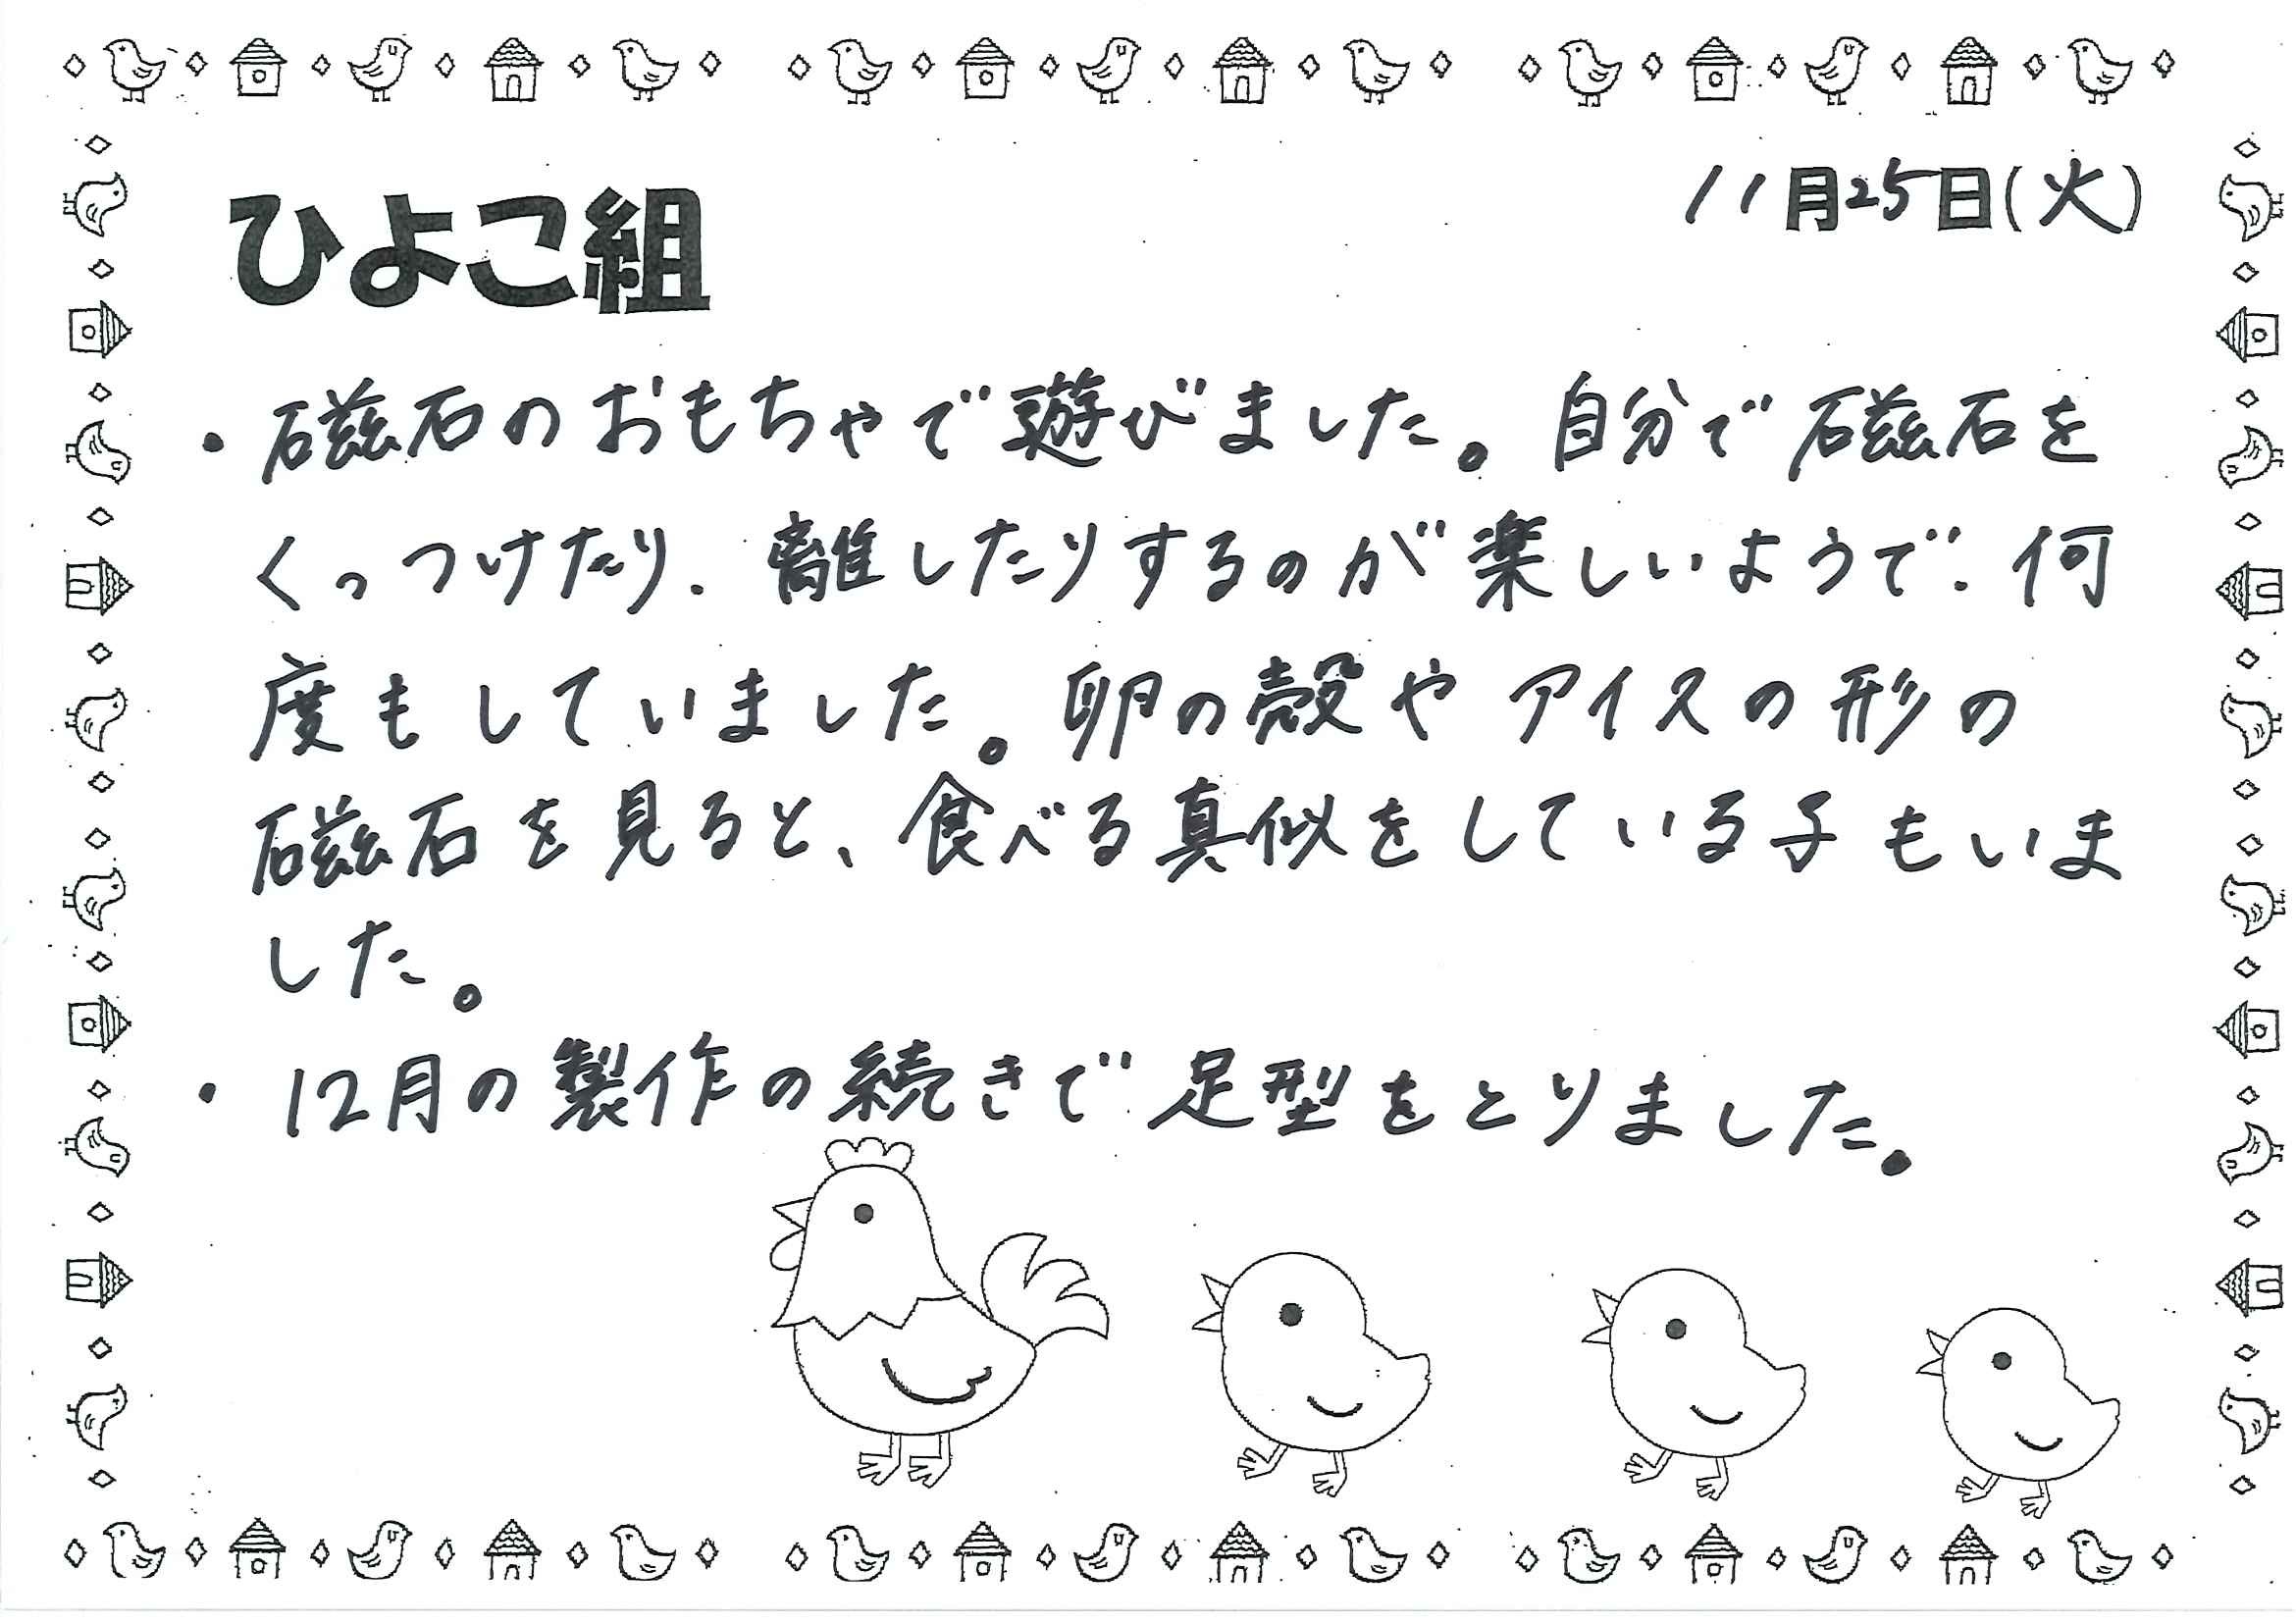 ひよこ組
11月25日(火)
・磁石のおもちゃで遊びました。自分で磁石を
くっつけたり、離したりするのが楽しいようで、何
度もしていました。卵の殻やアイスの形の
磁石を見ると、食べる真似をしている子もいま
した。
・12月の製作の続きで足型をとりました。